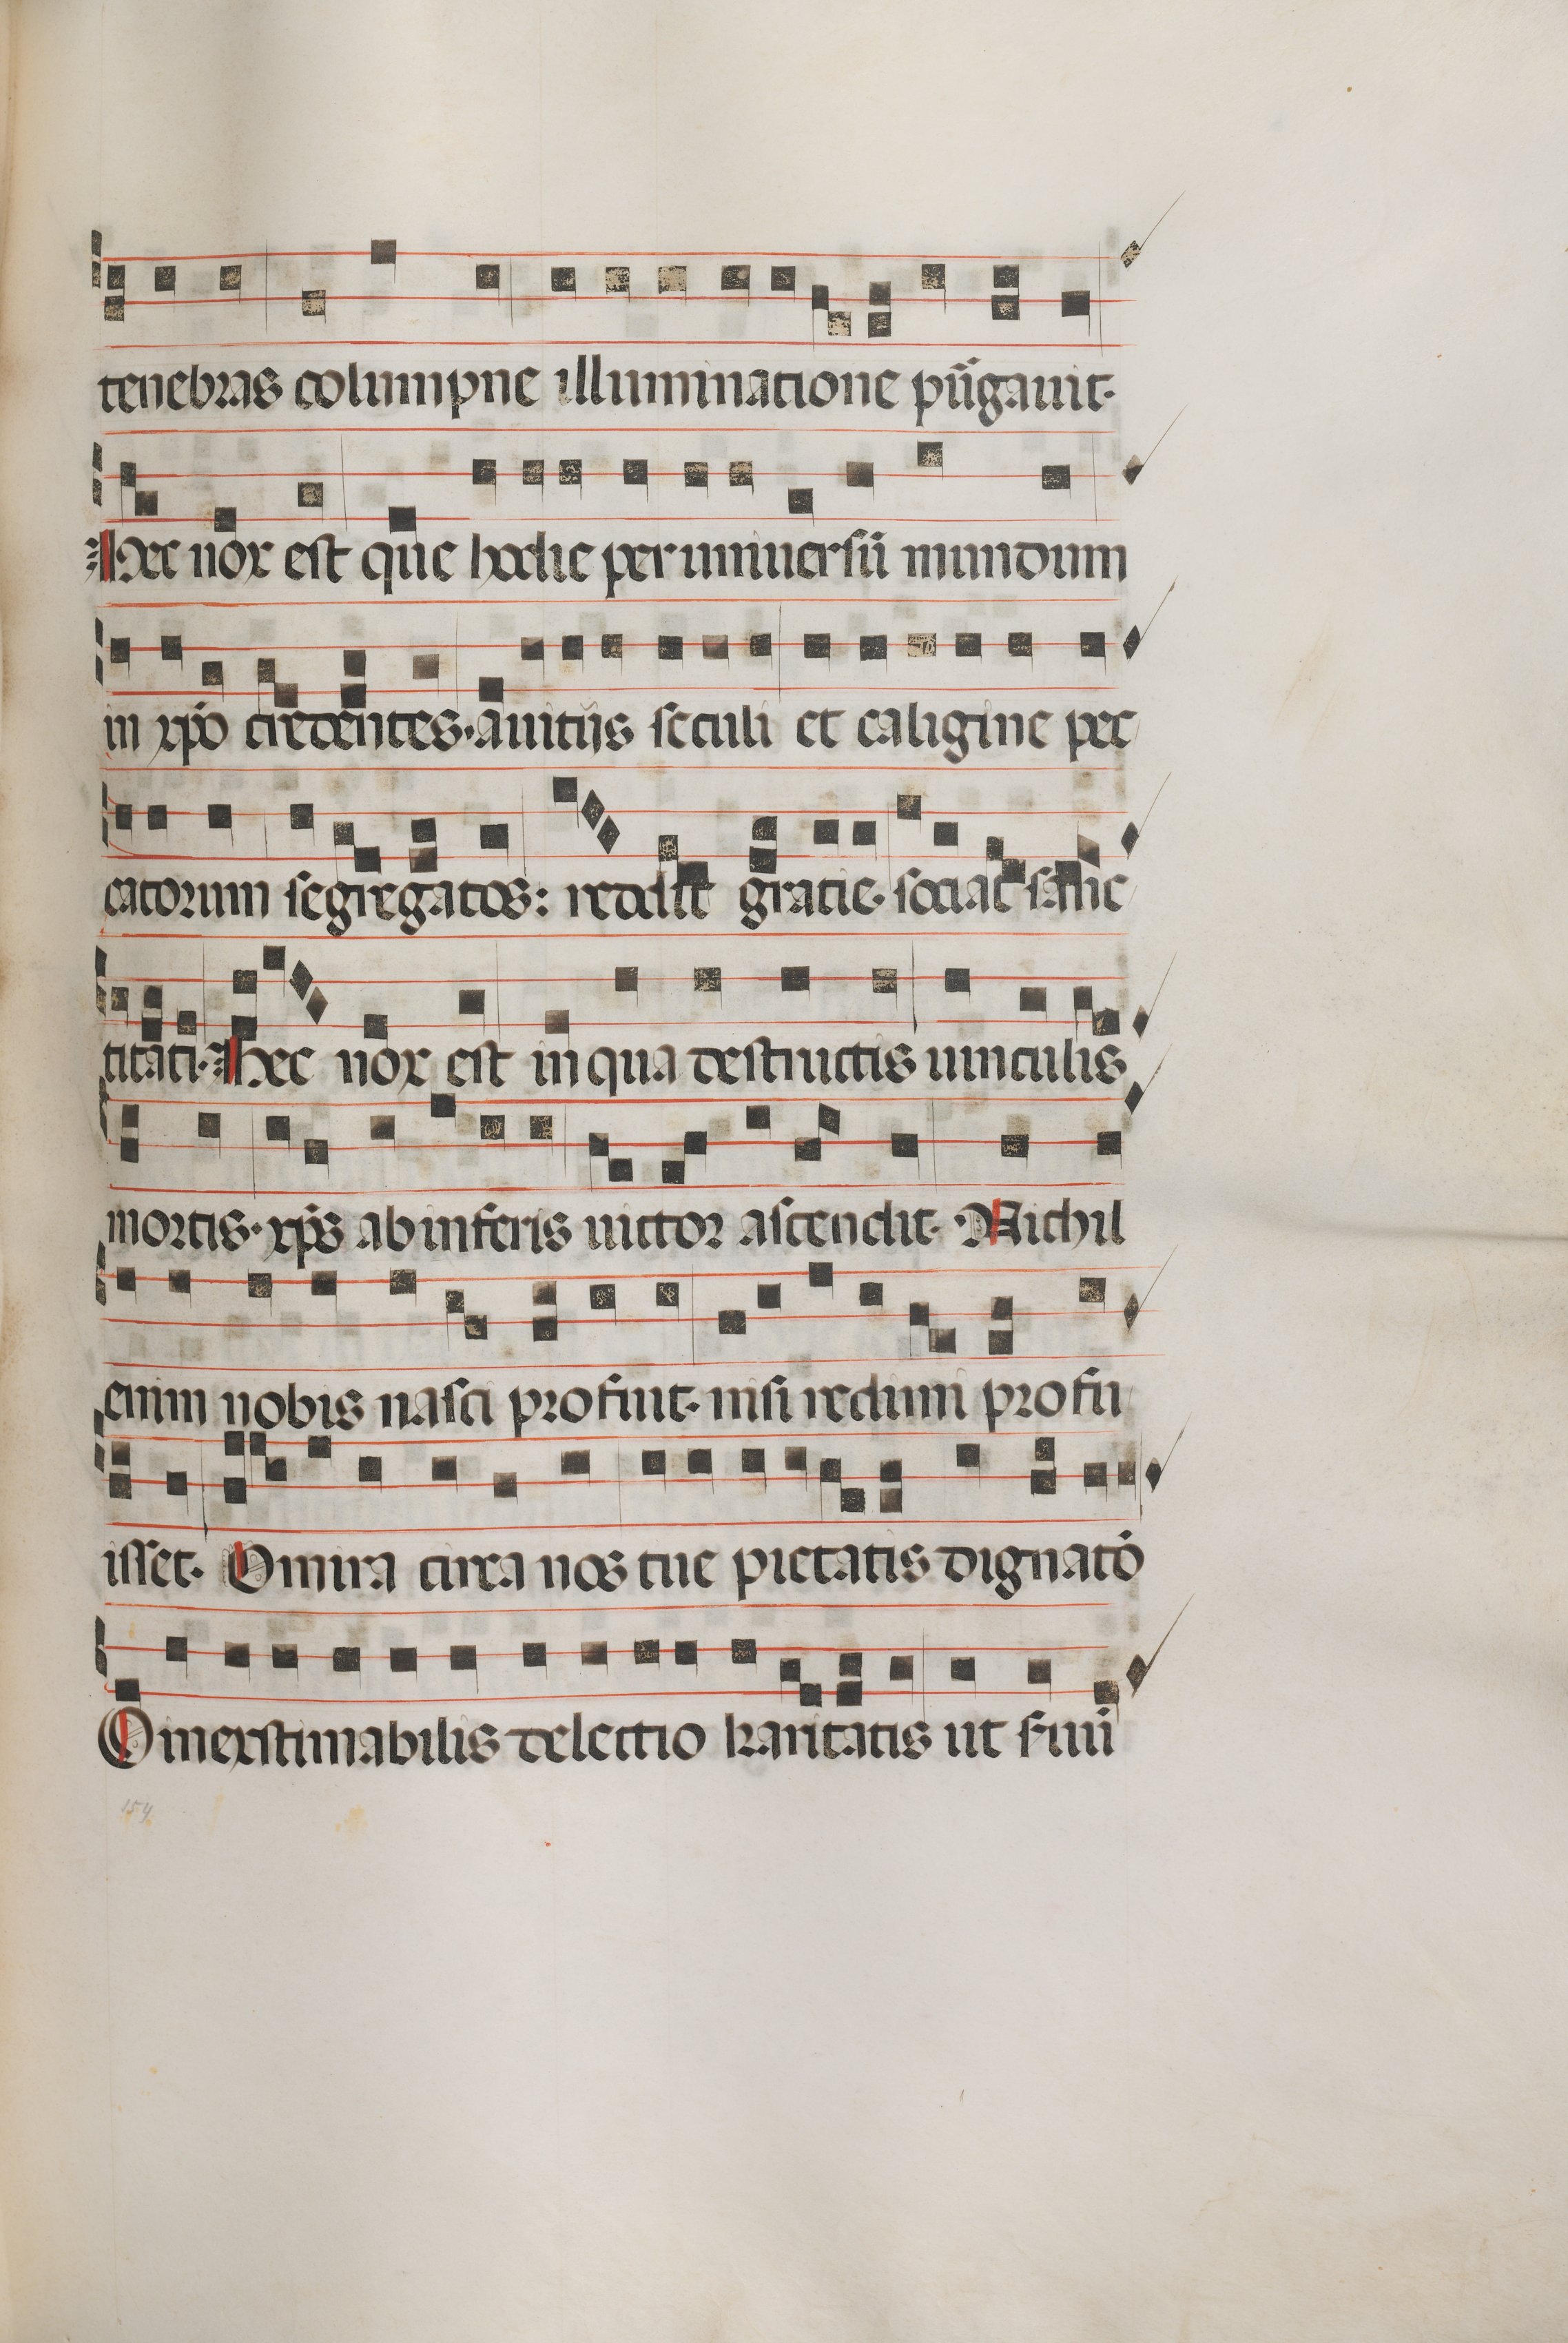 tenebras columpne illuminatione pūgauit·
Hec nox est que hodie per uniuersū mundum
in xp̄o credentes· a uitijs seculi et caligine pec
catorum segregatos: reddit gratie· sociat sanc
titati· Hec nox est in qua destructis uinculis
mortis· xp̄s ab inferis uictor ascendit· Nichil
enim nobis nasci profuit· nisi redimi profu
isset· O mira circa nos tue pietatis dignatō
O inextimabilis delectio karitatis ut suū
154